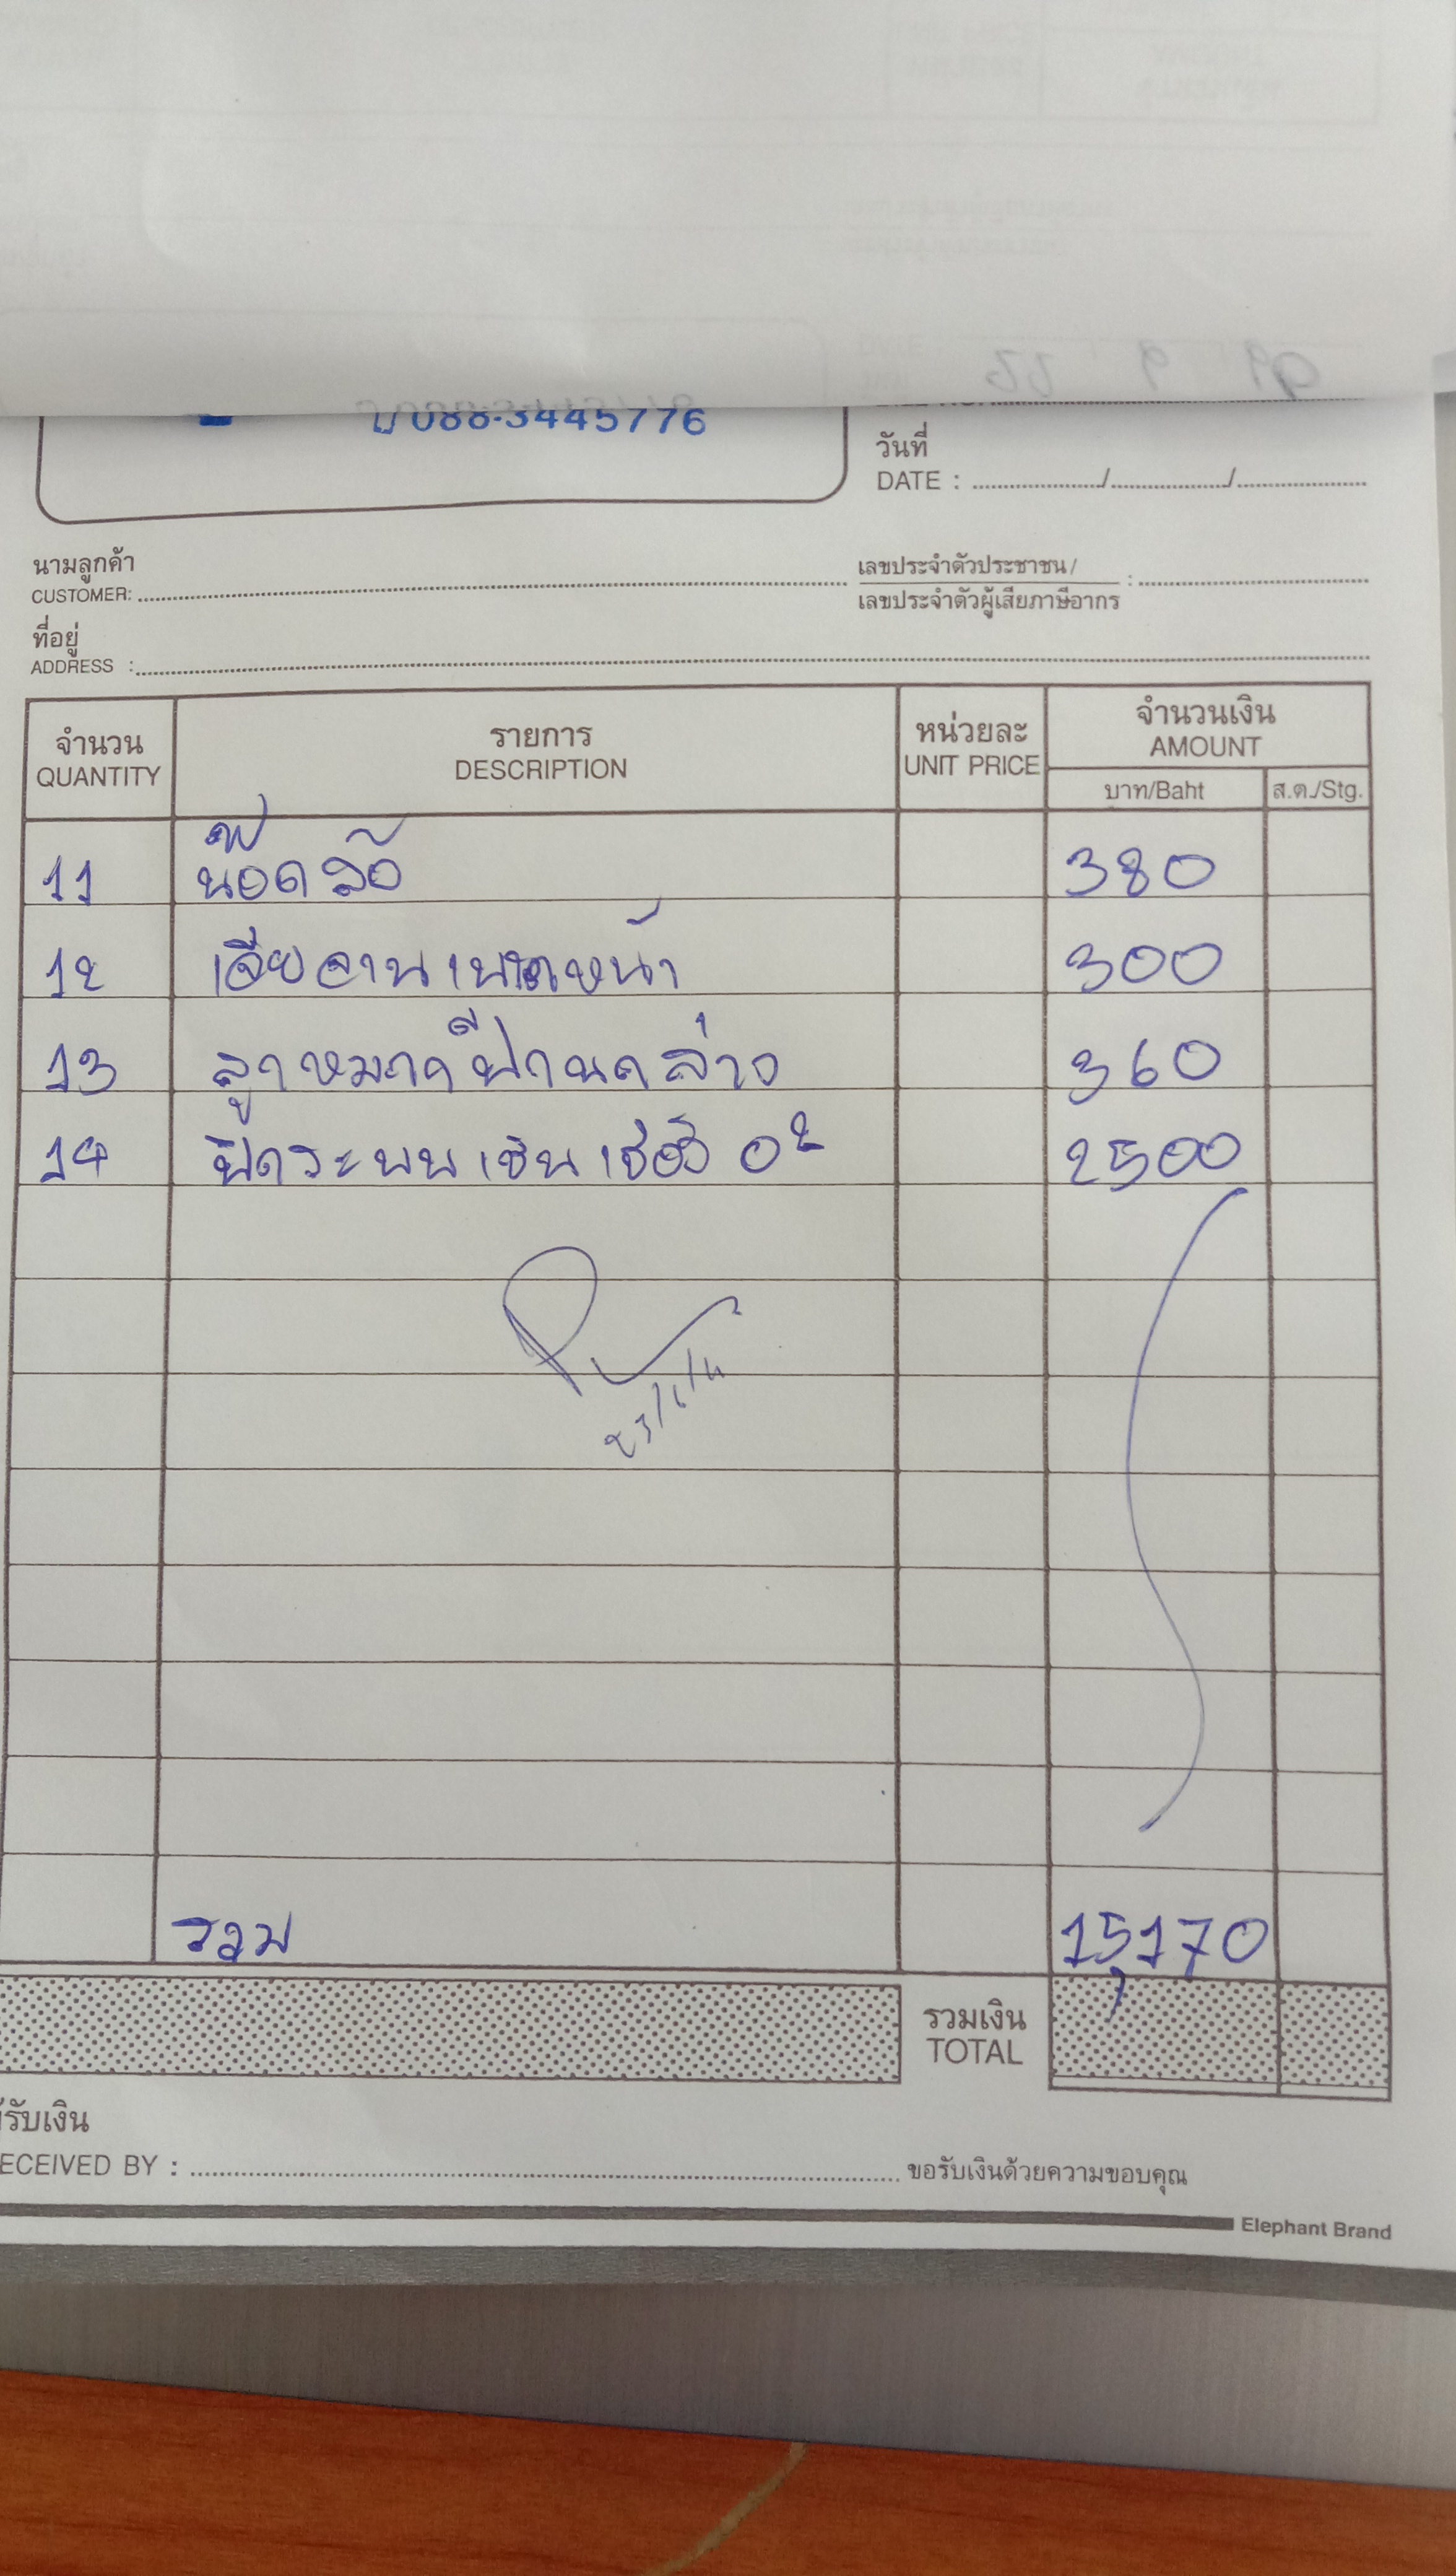 088-3445776
วันที่
DATE : ......../......../........
นามลูกค้า
CUSTOMER:
เลขประจำตัวประชาชน /
เลขประจำตัวผู้เสียภาษีอากร :
ที่อยู่
ADDRESS :
จำนวน รายการ หน่วยละ จำนวนเงิน
QUANTITY DESCRIPTION UNIT PRICE AMOUNT
บาท/Baht ส.ต./Stg.
11 น๊อตล้อ 380
12 เจียจานเบรคหน้า 300
13 ลูกหมากปีกนกล่าง 360
14 ปิดระบบเซ็นเซอร์ O2 2500
รวม 15,170
รวมเงิน
TOTAL
รับเงิน
ECEIVED BY : ขอรับเงินด้วยความขอบคุณ
Elephant Brand